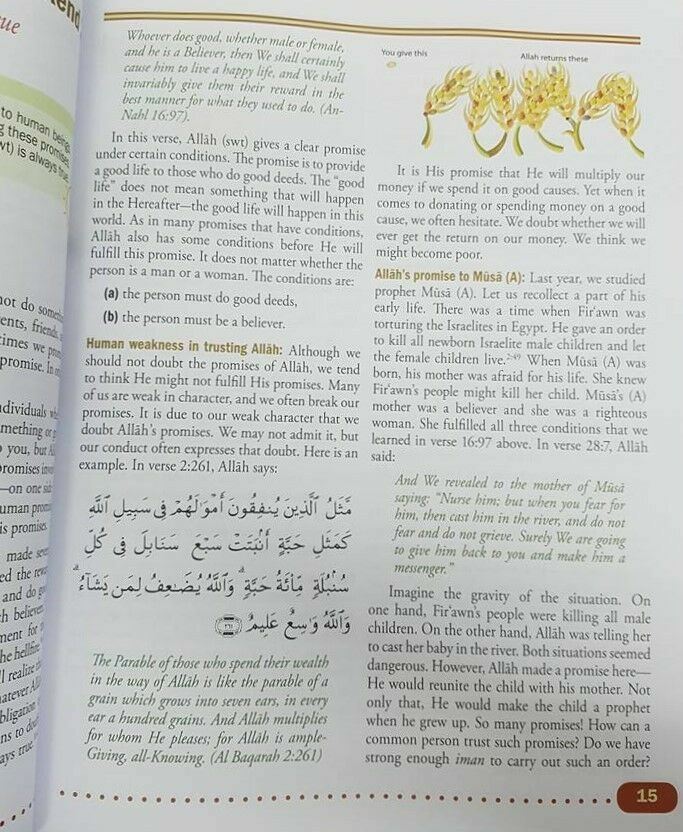 tend
ue
to human beings
g these promises
wt) is always true
not do someth
ents, friends,
times we pro
promise. In
dividuals w
mething or
o you, but Al
promises inv
—on one side
uman promi
is promises.
made seve
ed the rew
and do go
h believer
ment for
he hellfire
l realize
atever All
bligation
ns to do
ays true.
Whoever does good, whether male or female,
and he is a Believer, then We shall certainly
cause him to live a happy life, and We shall
invariably give them their reward in the
best manner for what they used to do. (An-
Nahl 16:97).
In this verse, Allāh (swt) gives a clear promise
under certain conditions. The promise is to provide
a good life to those who do good deeds. The “good
life” does not mean something that will happen
in the Hereafter—the good life will happen in this
world. As in many promises that have conditions,
Allāh also has some conditions before He will
fulfill this promise. It does not matter whether the
person is a man or a woman. The conditions are:
(a) the person must do good deeds,
(b) the person must be a believer.
Human weakness in trusting Allāh: Although we
should not doubt the promises of Allāh, we tend
to think He might not fulfill His promises. Many
of us are weak in character, and we often break our
promises. It is due to our weak character that we
doubt Allāh’s promises. We may not admit it, but
our conduct often expresses that doubt. Here is an
example. In verse 2:261, Allāh says:
مَّثَلُ ٱلَّذِينَ يُنفِقُونَ أَمْوَٰلَهُمْ فِى سَبِيلِ ٱللَّهِ
كَمَثَلِ حَبَّةٍ أَنۢبَتَتْ سَبْعَ سَنَابِلَ فِى كُلِّ
سُنۢبُلَةٍ مِّا۟ئَةُ حَبَّةٍ ۗ وَٱللَّهُ يُضَٰعِفُ لِمَن يَشَآءُ ۗ
وَٱللَّهُ وَٰسِعٌ عَلِيمٌ ٢٦١
The Parable of those who spend their wealth
in the way of Allāh is like the parable of a
grain which grows into seven ears, in every
ear a hundred grains. And Allāh multiplies
for whom He pleases; for Allāh is ample-
Giving, all-Knowing. (Al Baqarah 2:261)
You give this
Allah returns these
It is His promise that He will multiply our
money if we spend it on good causes. Yet when it
comes to donating or spending money on a good
cause, we often hesitate. We doubt whether we will
ever get the return on our money. We think we
might become poor.
Allāh’s promise to Mūsā (A): Last year, we studied
prophet Mūsā (A). Let us recollect a part of his
early life. There was a time when Fir‘awn was
torturing the Israelites in Egypt. He gave an order
to kill all newborn Israelite male children and let
the female children live.2:49 When Mūsā (A) was
born, his mother was afraid for his life. She knew
Fir‘awn’s people might kill her child. Mūsā’s (A)
mother was a believer and she was a righteous
woman. She fulfilled all three conditions that we
learned in verse 16:97 above. In verse 28:7, Allāh
said:
And We revealed to the mother of Mūsā
saying: “Nurse him; but when you fear for
him, then cast him in the river, and do not
fear and do not grieve. Surely We are going
to give him back to you and make him a
messenger.”
Imagine the gravity of the situation. On
one hand, Fir‘awn’s people were killing all male
children. On the other hand, Allāh was telling her
to cast her baby in the river. Both situations seemed
dangerous. However, Allāh made a promise here—
He would reunite the child with his mother. Not
only that, He would make the child a prophet
when he grew up. So many promises! How can a
common person trust such promises? Do we have
strong enough iman to carry out such an order?
15